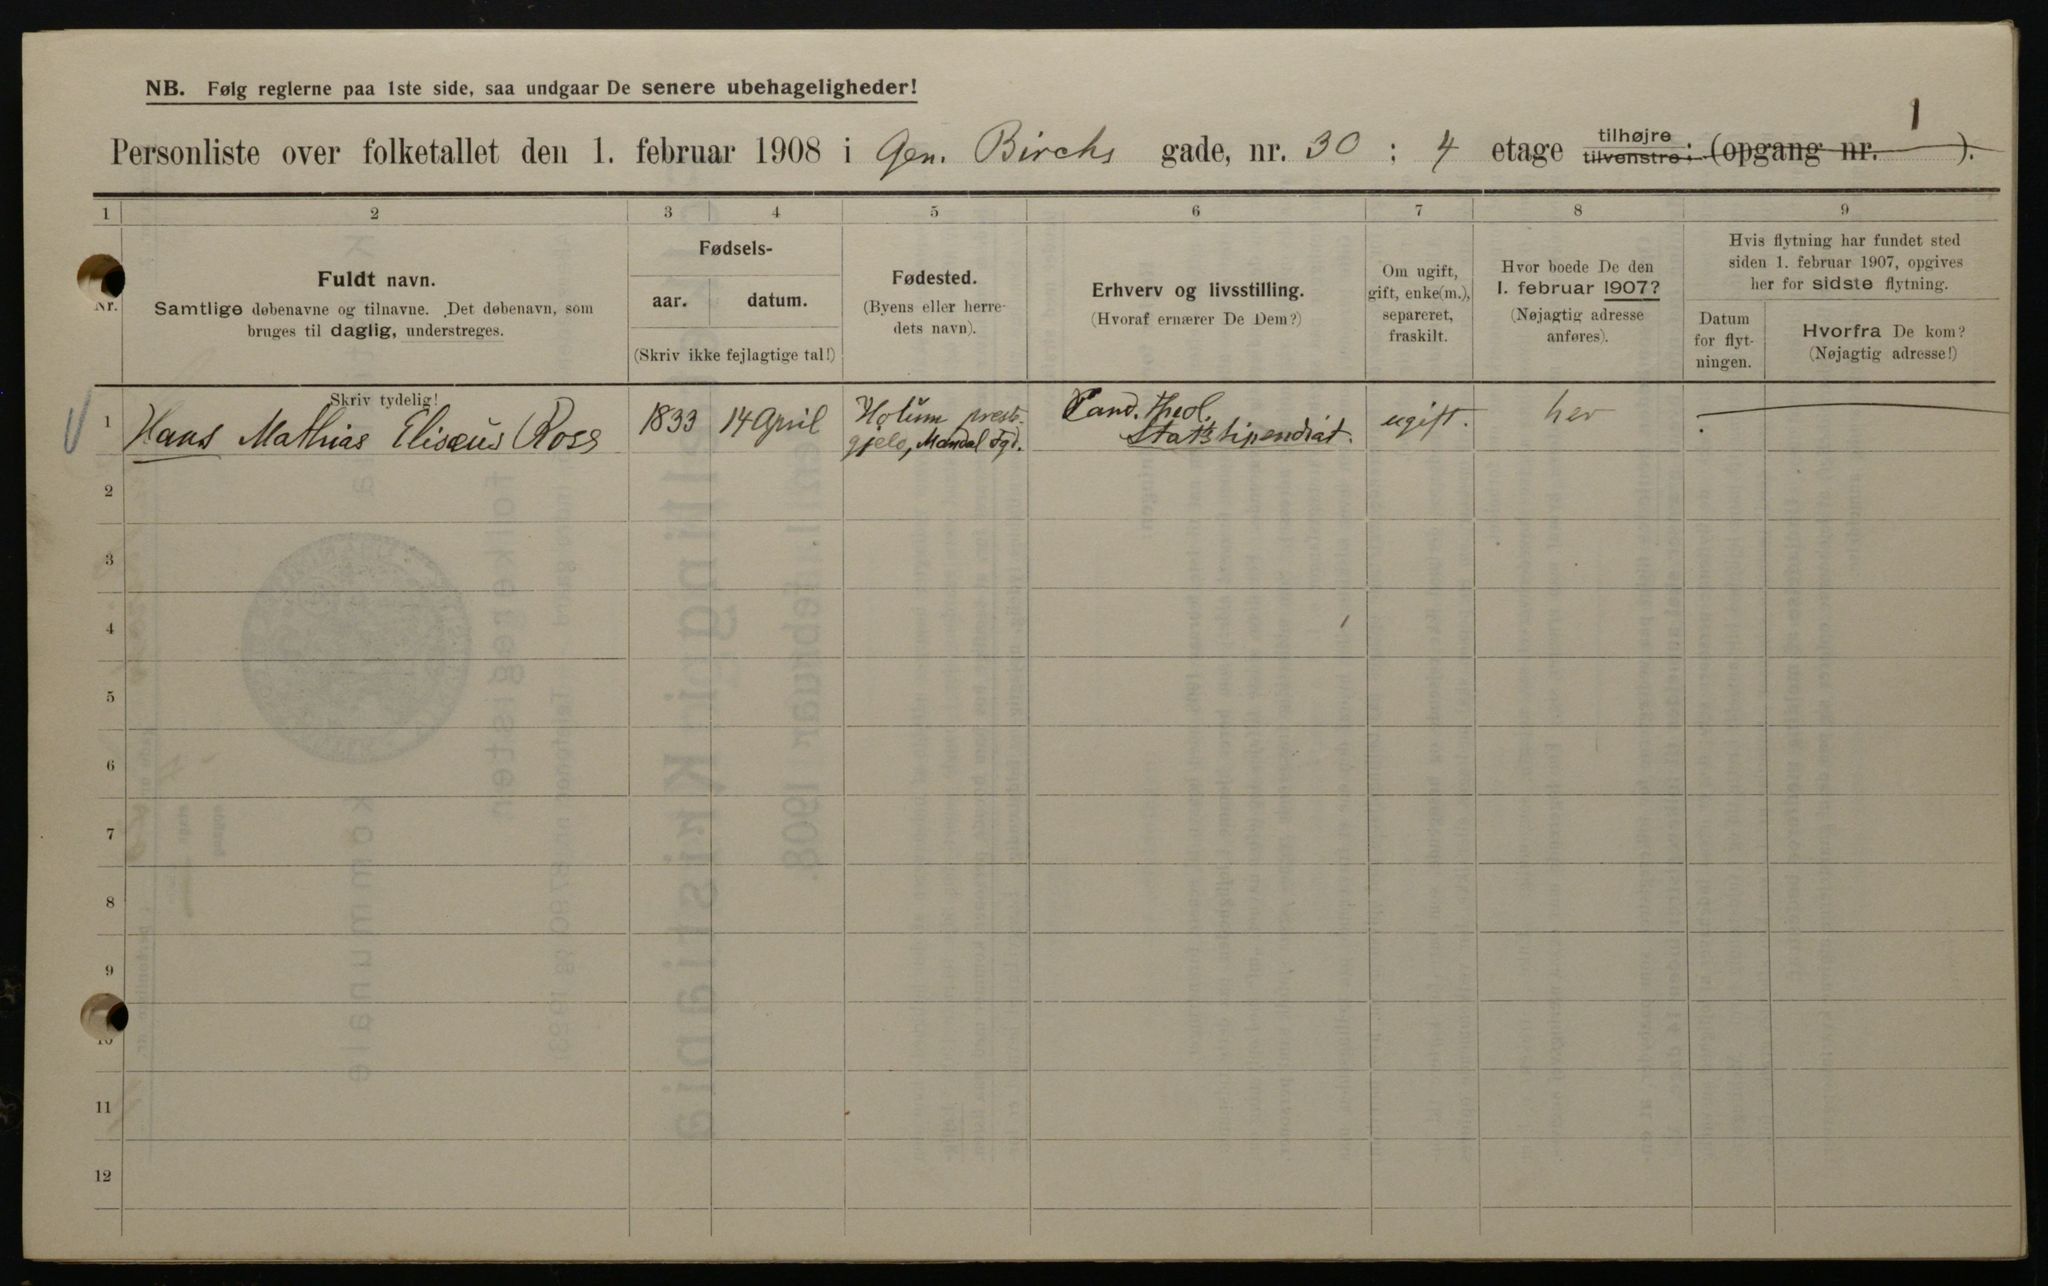 NB. Følg reglerne paa 1ste side, saa undgaar De senere ubehageligheder!
1
Personliste over folketallet den 1. februar 1908 i Gen. Birchs gade, nr. 30 ; 4 etage tilhøjre tilvenstre; (opgang nr. ).
1 2 3 4 5 6 7 8 9
Nr.
Fuldt navn.
Samtlige døbenavne og tilnavne. Det døbenavn, som
bruges til daglig, understreges.
Skriv tydelig!
Fødsels-
aar. datum.
(Skriv ikke fejlagtige tal!)
Fødested.
(Byens eller herre-
dets navn).
Erhverv og livsstilling.
(Hvoraf ernærer De Dem?)
Om ugift,
gift, enke(m.),
separeret,
fraskilt.
Hvor boede De den
1. februar 1907?
(Nøjagtig adresse
anføres).
Hvis flytning har fundet sted
siden 1. februar 1907, opgives
her for sidste flytning.
Datum
for flyt-
ningen.
Hvorfra De kom?
(Nøjagtig adresse!)
1
Hans Mathias Elisæus Ross
1833
14 April
Holum prests-
gjeld, Mandal Fgd.
Cand. theol.
Statsstipendiat.
ugift.
her
2
3
4
5
6
7
8
9
10
11
12